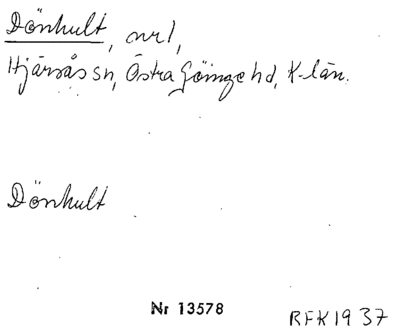 Dönhult, nr 1,
Hjärsås sn, Östra Göinge hd, K-län.
Dönhult
Nr 13578
RFK 1937